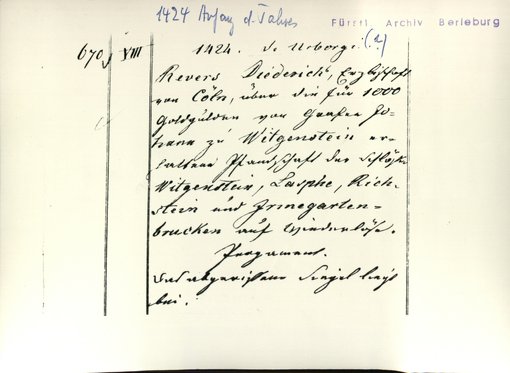 1424 Anfang d. Jahres
Fürstl. Archiv Berleburg
670 VIII
1424. (2)
Revers Diederichs, Erzbischofs
von Cöln, über die für 1000
Goldgulden von Grafen Jo-
hann zu Witgenstein er-
haltene Pfandschaft der Schlösser
Witgenstein, Lasphe, Rich-
stein und Irmegarten-
brucken auf Wiederlöse.
Pergament.
Das abgerissene Siegel liegt
bei.